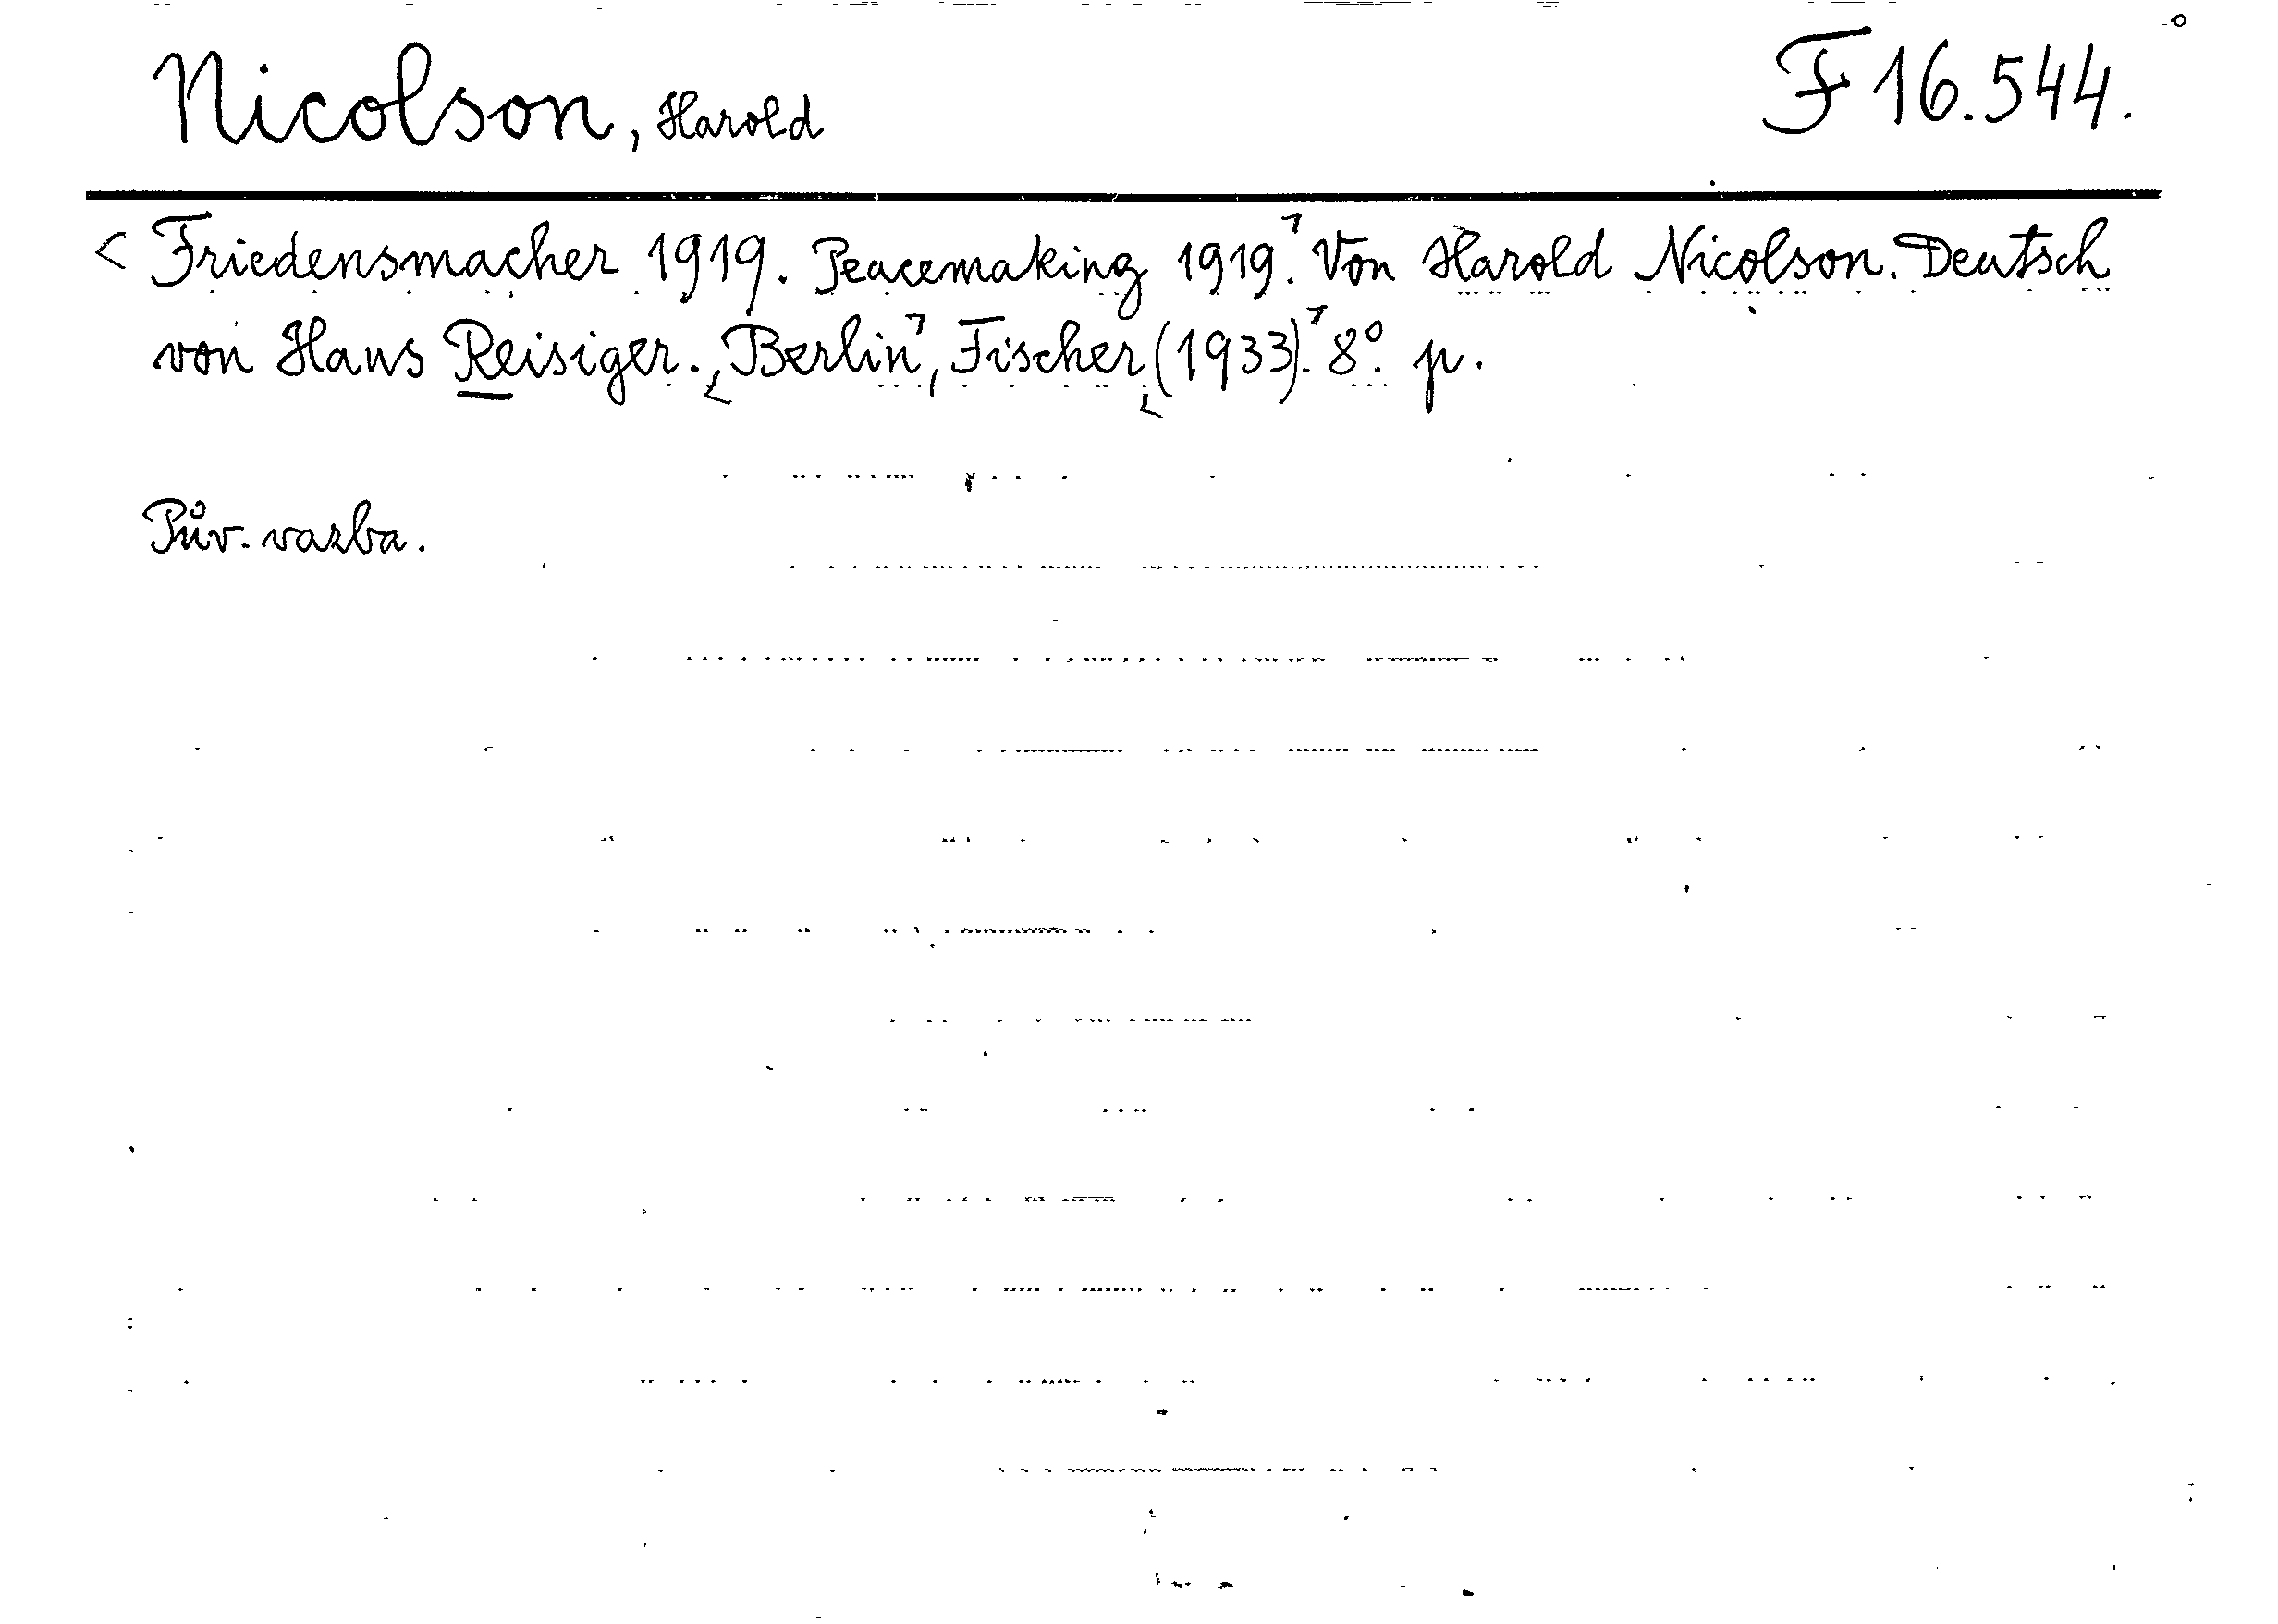 Nicolson, Harold F 16.544.
< Friedensmacher 1919. Peacemaking 1919.⌝ Von Harold Nicolson. Deutsch
von Hans Reisiger. <Berlin⌝, Fischer <(1933).⌝ 8º. p.
Pův. vazba.